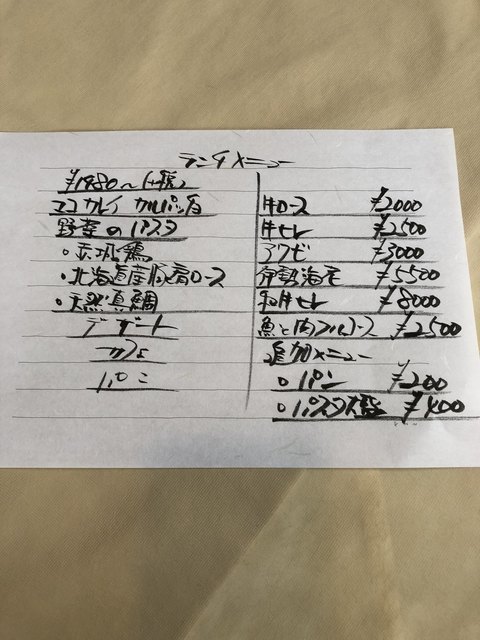 ランチメニュー
¥1980〜(+税)
マコカレイ カルパッチョ
野菜のパスタ
・赤城鶏
・北海道産豚肩ロース
・天然真鯛
デザート
カフェ
パン
牛ロース ¥2000
牛ヒレ ¥2500
アワビ ¥3000
伊勢海老 ¥5500
和牛ヒレ ¥8000
魚と肉フルコース ¥2500
追加メニュー
○パン ¥200
○パスタ大盛 ¥400